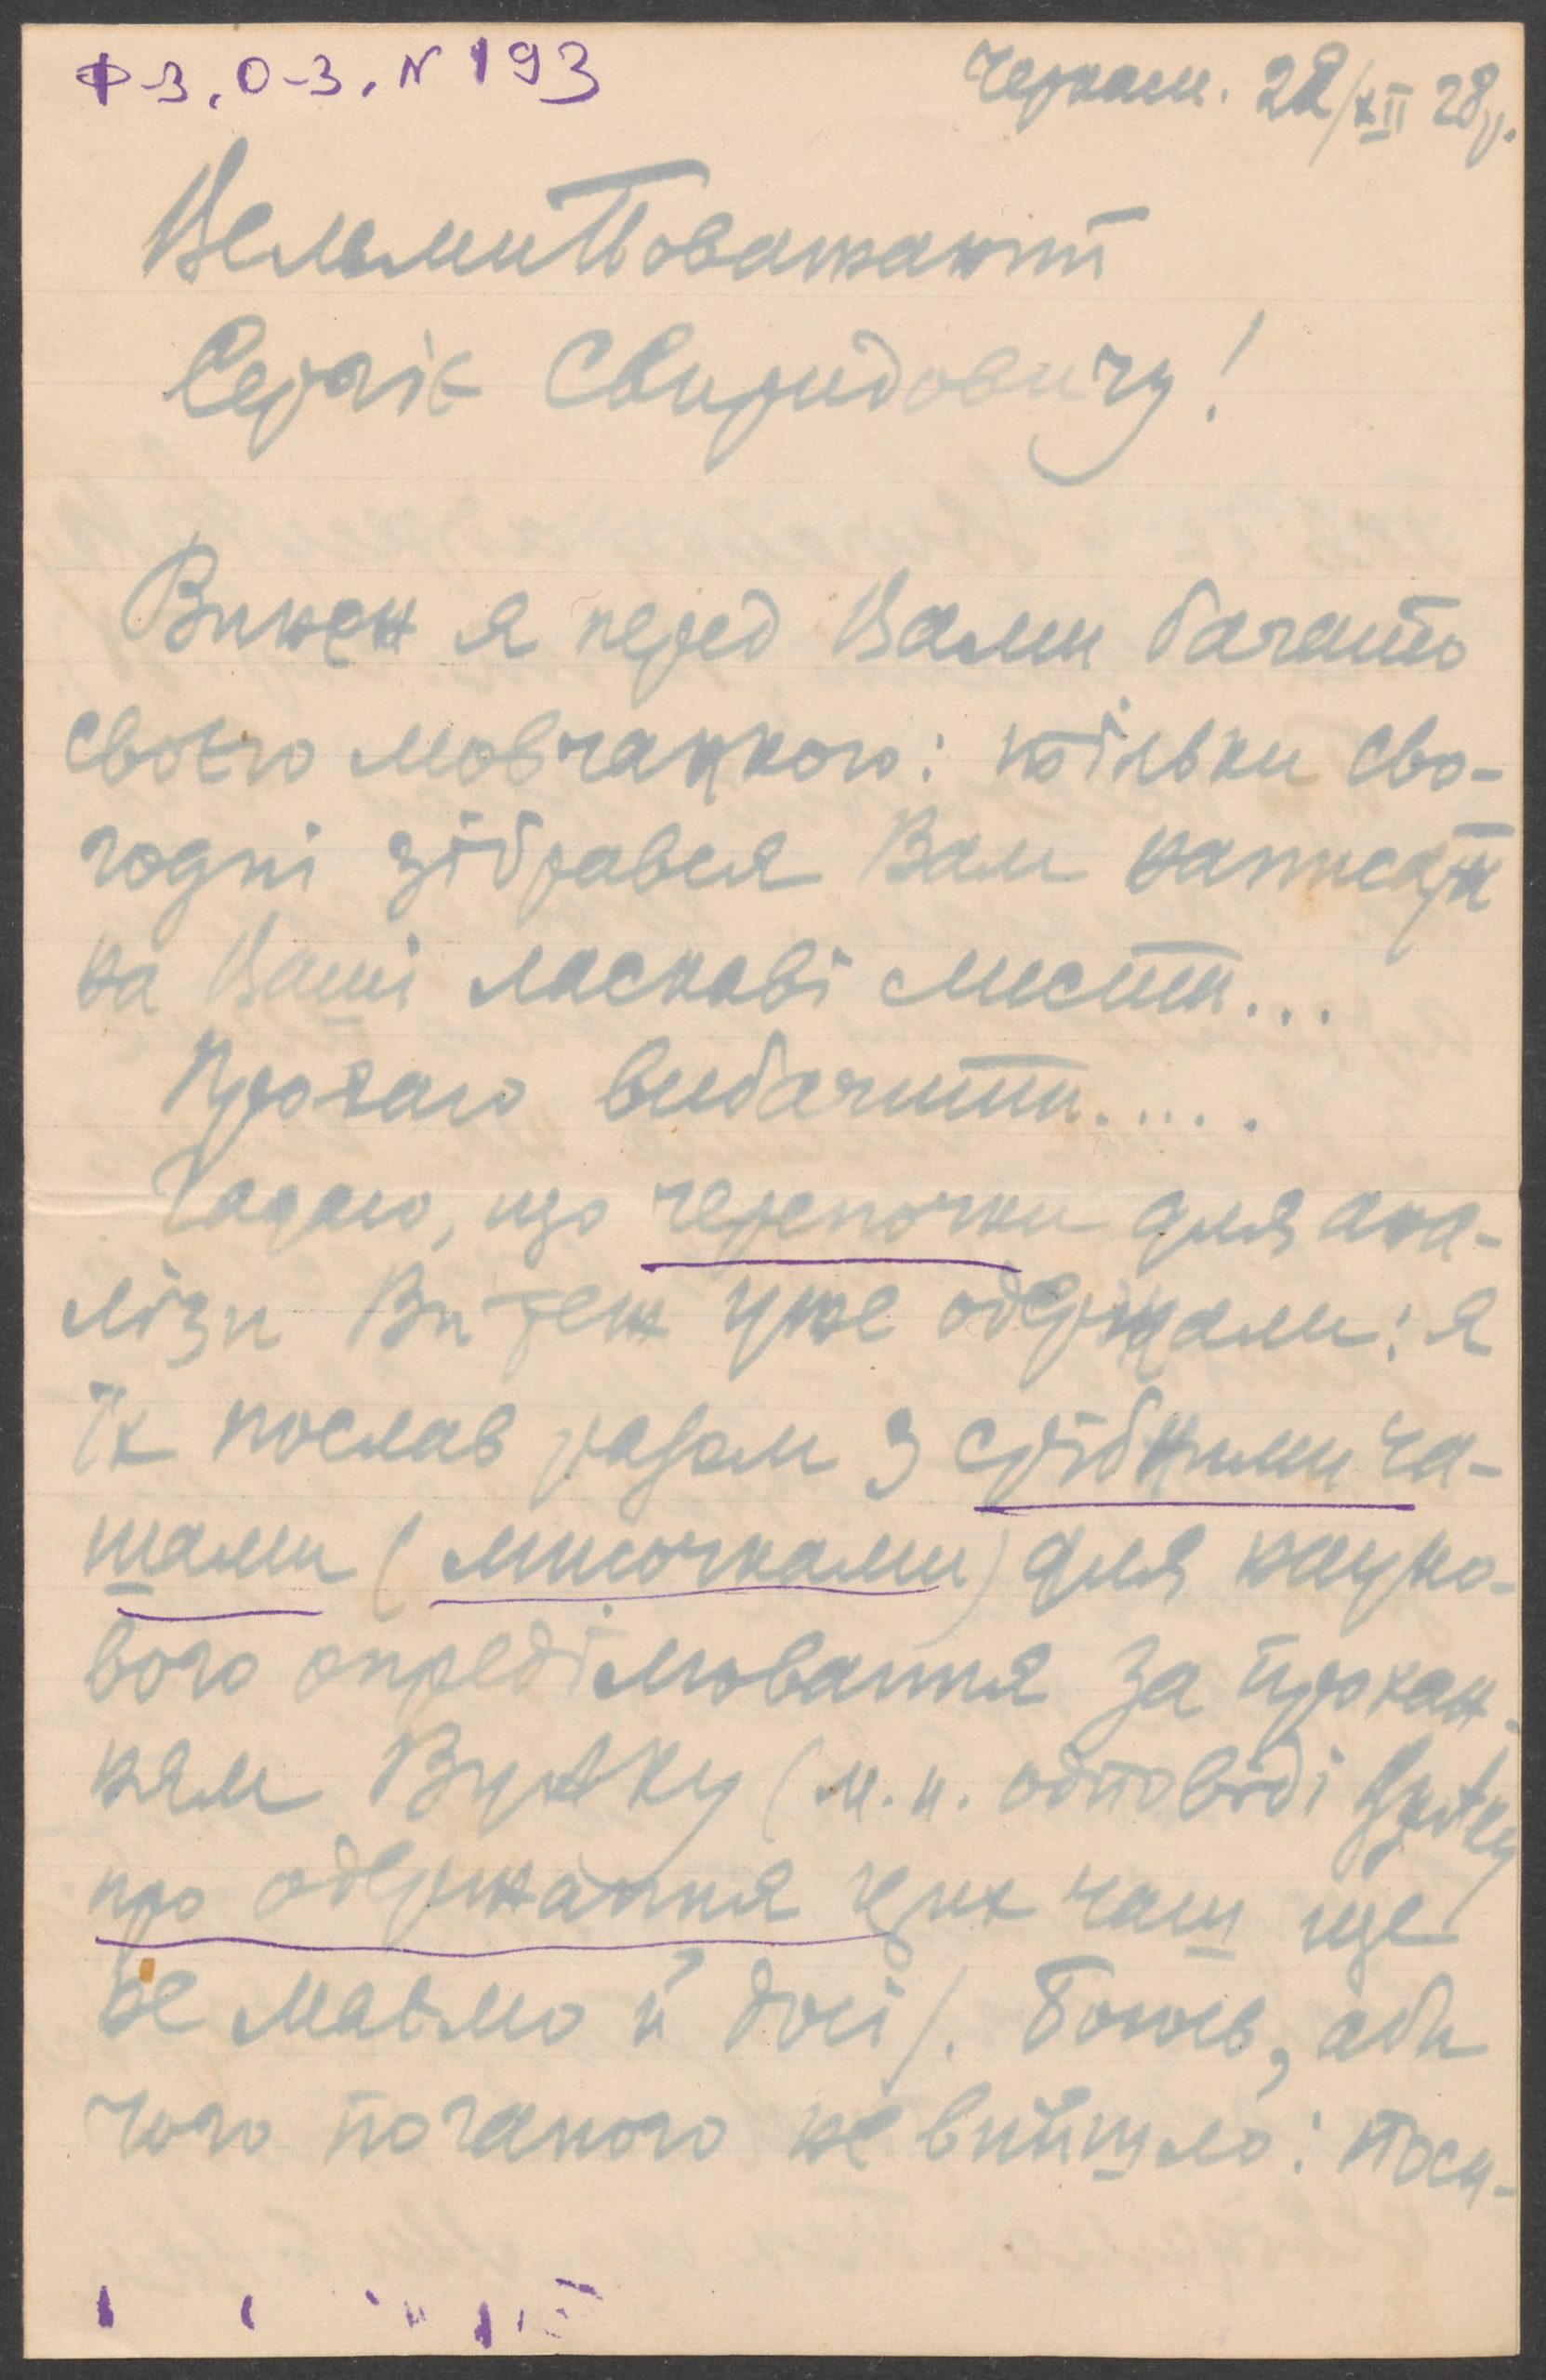 Ф-3, О-3, N 193
Черкаси. 22/XII 28 р.
ВельмиПоважаний
Сергіє Свиридовичу!
Винен я перед Вами багато
своєю мовчанкою: тільки сьо-
годні зібрався Вам написати
на Ваші ласкаві листи...
Прохаю вибачити.....
Гадаю, що черепочки для ана-
лізи Ви теж уже одержали: я
їх послав разом з срібними ча-
шами (мисочками) для науко-
вого опреділювання за прохан-
ням Вуакку (м. и. одповіді
про одержання цих чаш ще
не маємо й досі). Боюсь, аби
чого поганого не вийшло: поси-